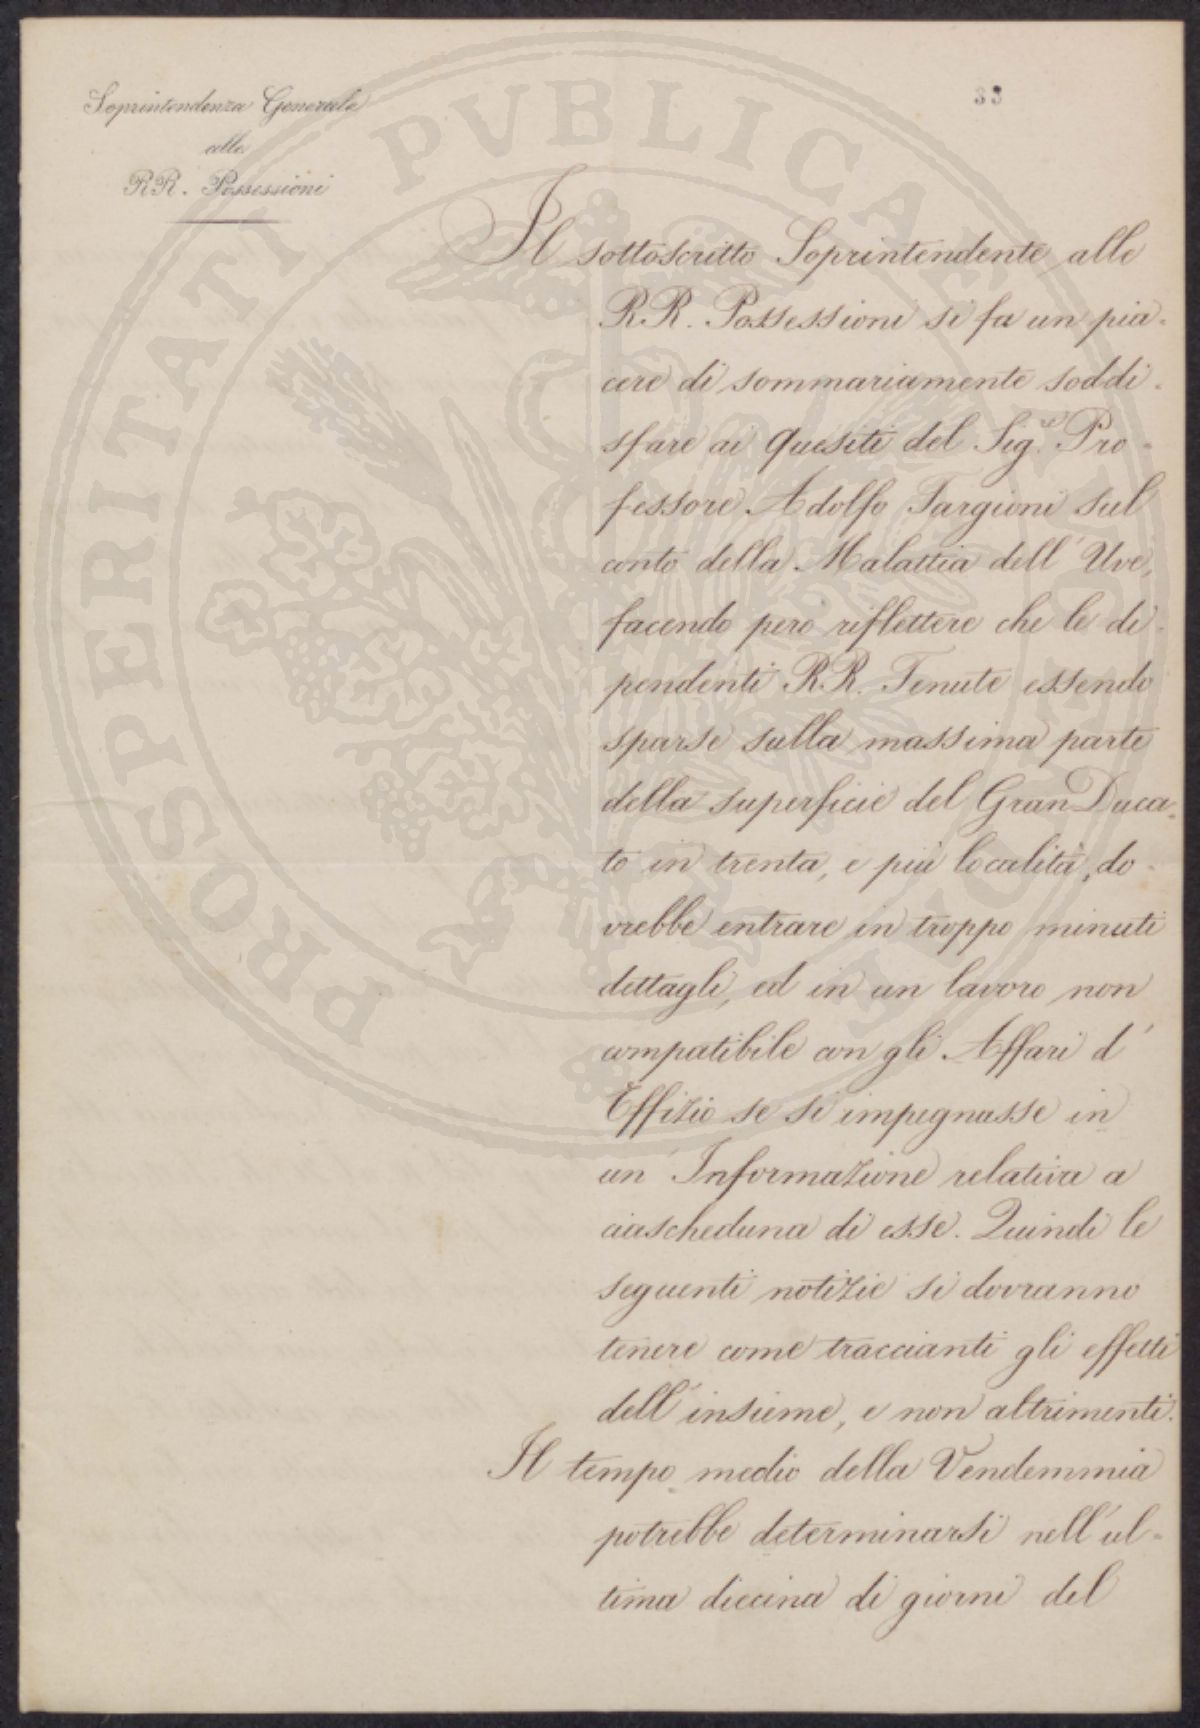 Soprintendenza Generale
alle
RR. Possessioni
33
Il sottoscritto Soprintendente alle
RR. Possessioni si fa un pia-
cere di sommariamente soddi-
sfare ai quesiti del Sig.re Pro-
fessore Adolfo Targioni sul
conto della Malattia dell'Uve,
facendo però riflettere che le di-
pendenti RR. Tenute essendo
sparse sulla massima parte
della superficie del GranDuca-
to in trenta, e più località, do-
vrebbe entrare in troppo minuti
dettagli, ed in un lavoro non
compatibile con gli Affari d'
Effizio se si impegnasse in
un'Informazione relativa a
ciascheduna di esse. Quindi le
seguenti notizie si dovranno
tenere come traccianti gli effetti
dell'insieme, e non altrimenti.
Il tempo medio della Vendemmia
potrebbe determinarsi nell'ul-
tima diecina di giorni del
PROSPERITATI PVBLICAE